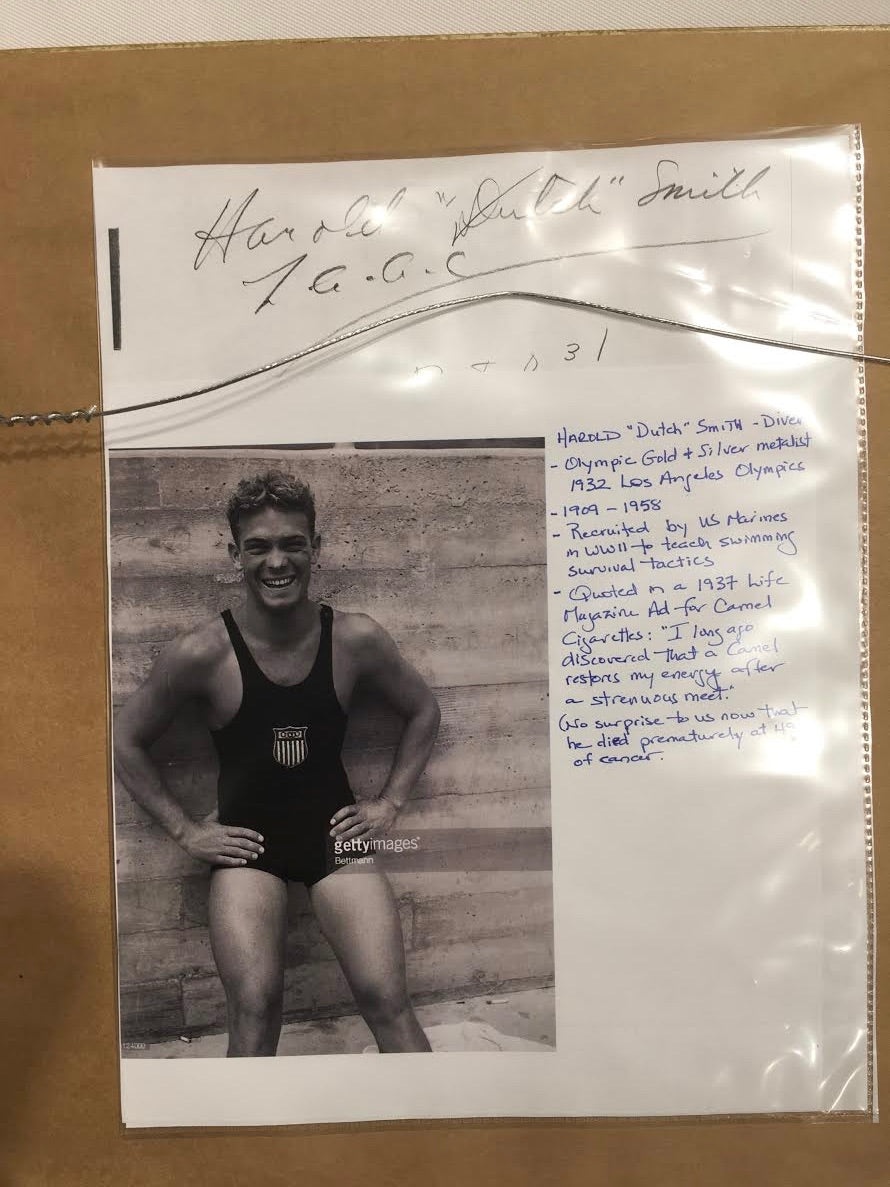 Harold "Dutch" Smith
L.A.A.C
31
HAROLD "Dutch" SMITH - Diver
- Olympic Gold + Silver metalist
1932 Los Angeles Olympics
- 1909 - 1958
- Recruited by US Marines
in WWII to teach swimming
survival tactics
- Quoted in a 1937 Life
Magazine Ad for Camel
Cigarettes: "I long ago
discovered that a Camel
restores my energy after
a strenuous meet."
(No surprise to us now that
he died prematurely at 49
of cancer.
gettyimages®
Bettmann